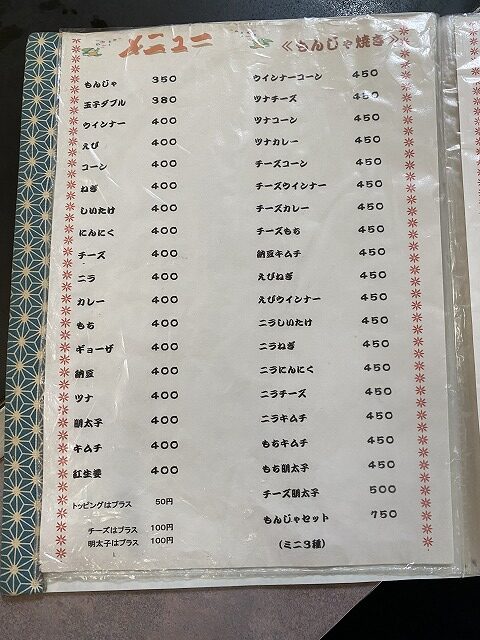 メニュー
≪もんじゃ焼き≫
もんじゃ 350
玉子ダブル 380
ウインナー 400
えび 400
コーン 400
ねぎ 400
しいたけ 400
にんにく 400
チーズ 400
ニラ 400
カレー 400
もち 400
ギョーザ 400
納豆 400
ツナ 400
明太子 400
キムチ 400
紅生姜 400
トッピングはプラス 50円
チーズはプラス 100円
明太子はプラス 100円
ウインナーコーン 450
ツナチーズ 450
ツナコーン 450
ツナカレー 450
チーズコーン 450
チーズウインナー 450
チーズカレー 450
チーズもち 450
納豆キムチ 450
えびねぎ 450
えびウインナー 450
ニラしいたけ 450
ニラねぎ 450
ニラにんにく 450
ニラチーズ 450
ニラキムチ 450
もちキムチ 450
もち明太子 450
チーズ明太子 500
もんじゃセット 750
（ミニ3種）